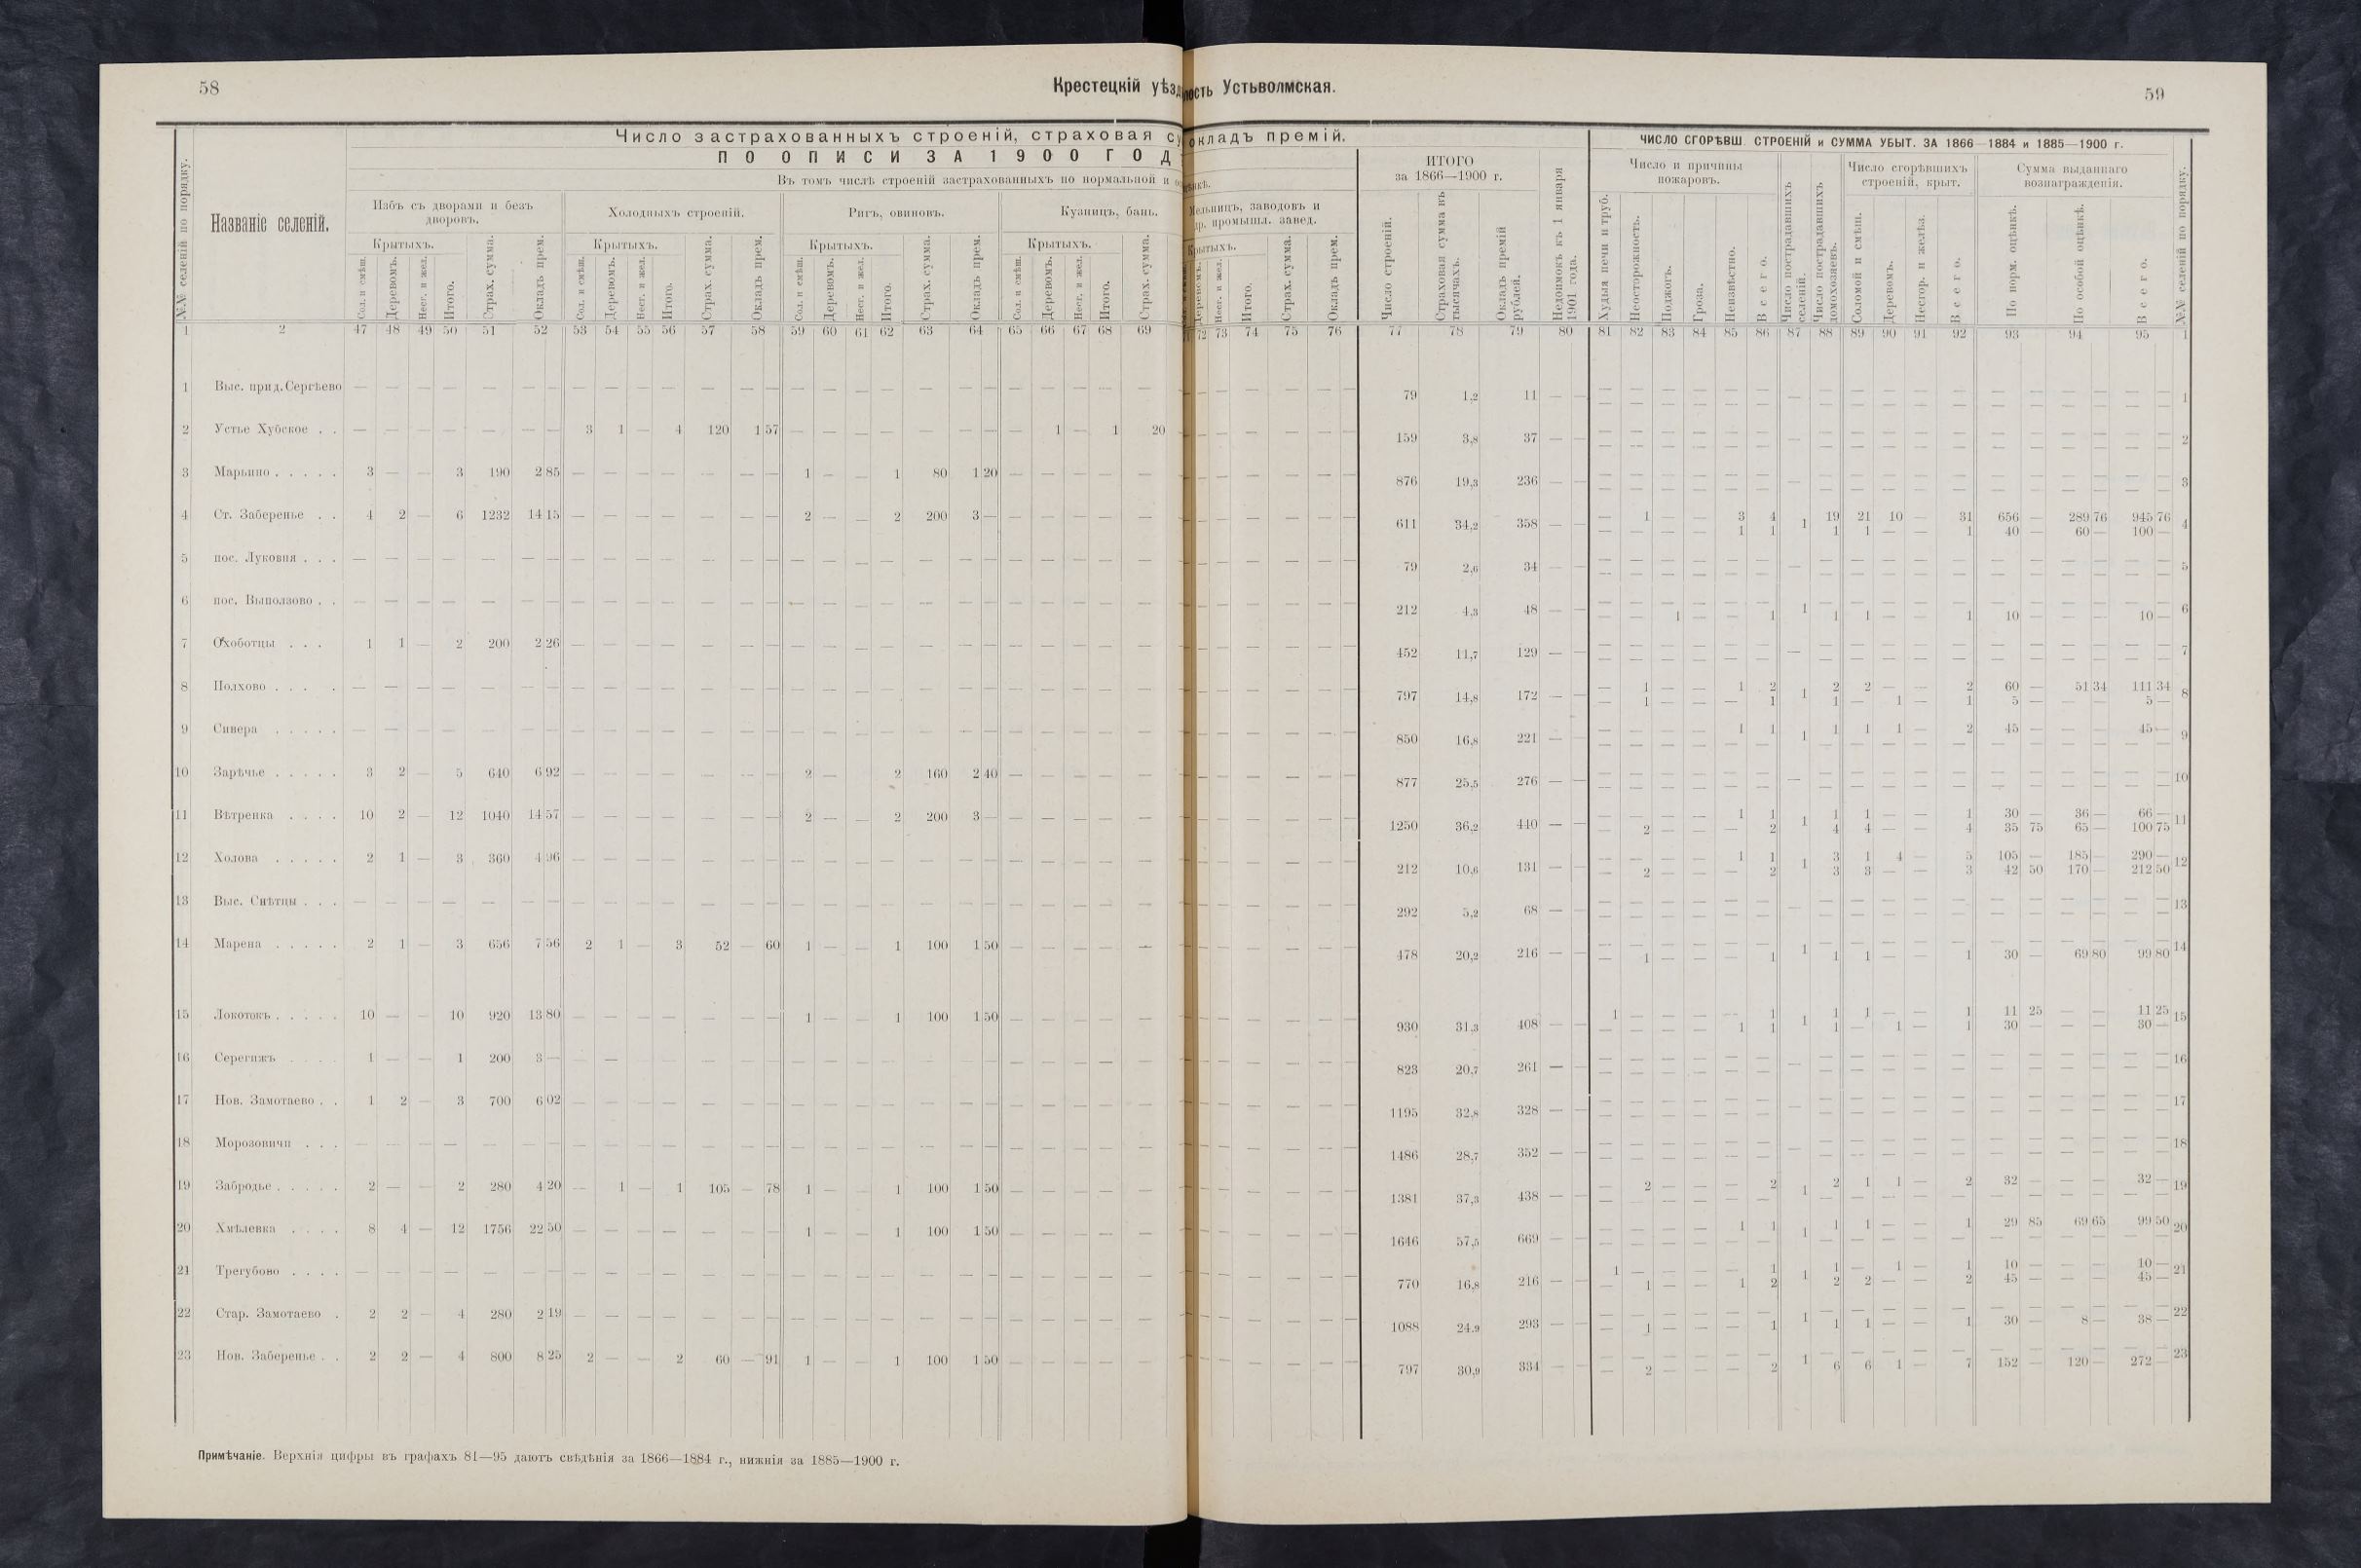 58
Крестецкій уѣзд
ость Устьволмская.
59
Число застрахованныхъ строеній, страховая с
окладъ премій.
ПО ОПИСИ ЗА 1900 ГОД
Въ томъ числѣ строеній застрахованныхъ по нормальной и
№№ селеній по порядку.
Названіе селеній.
Избъ съ дворами и безъ дворовъ.
Холодныхъ строеній.
Ригъ, овиновъ.
Кузницъ, бань.
Мельницъ, заводовъ и др. промышл. завед.
ИТОГО за 1866—1900 г.
Недоимокъ къ 1 января 1901 года.
ЧИСЛО СГОРѢВШ. СТРОЕНІЙ и СУММА УБЫТ. ЗА 1866—1884 и 1885—1900 г.
Число и причины пожаровъ.
Число пострадавшихъ селеній.
Число пострадавшихъ домохозяевъ.
Число сгорѣвшихъ строеній, крыт.
Сумма выданнаго вознагражденія.
№№ селеній по порядку.
Крытыхъ. Сол. и смѣш. Деревомъ. Несг. и жел. Итого. Страх. сумма. Окладъ прем.
Крытыхъ. Сол. и смѣш. Деревомъ. Несг. и жел. Итого. Страх. сумма. Окладъ прем.
Крытыхъ. Сол. и смѣш. Деревомъ. Несг. и жел. Итого. Страх. сумма. Окладъ прем.
Крытыхъ. Сол. и смѣш. Деревомъ. Несг. и жел. Итого. Страх. сумма.
Крытыхъ. Деревомъ. Несг. и жел. Итого. Страх. сумма. Окладъ прем.
Число строеній. Страховая сумма въ тысячахъ. Окладъ премій рублей.
Худыя печи и труб. Неосторожность. Поджогъ. Гроза. Неизвѣстно. Всего.
Соломой и смѣш. Деревомъ. Несгор. и желѣз. Всего.
По норм. оцѣнкѣ. По особой оцѣнкѣ. Всего.
1 2 47 48 49 50 51 52 53 54 55 56 57 58 59 60 61 62 63 64 65 66 67 68 69 72 73 74 75 76 77 78 79 80 81 82 83 84 85 86 87 88 89 90 91 92 93 94 95 1
1 Выс. при д. Сергѣево — — — — — — — — — — — — — — — — — — — — — — — 79 1,2 11 — — 1
2 Устье Хубское . . — — — — — — 3 1 — 4 120 1 57 — — — — — — — 1 — 1 20 159 3,8 37 — — 2
3 Марьино . . . . . 3 — — 3 190 2 85 — — — — — — 1 — — 1 80 1 20 — — — — — 876 19,3 236 — — 3
4 Ст. Заберенье . . 4 2 — 6 1232 14 15 — — — — — — 2 — — 2 200 3 — — — — — — 611 34,2 358 — — — 1 — — 3 4 1 19 21 10 — 31 656 — 289 76 945 76 4
— — — — 1 1 1 1 — — 1 40 — 60 — 100 —
5 пос. Луковня . . . — — — — — — — — — — — — — — — — — — — — — — — 79 2,6 34 — — 5
6 пос. Выползово . . — — — — — — — — — — — — — — — — — — — — — — — 212 4,3 48 — — 1 6
— — 1 — — 1 1 1 — — 1 10 — — — 10 —
7 Охоботцы . . . 1 1 — 2 200 2 26 — — — — — — — — — — — — — — — — — 452 11,7 129 — — 7
8 Полхово . . . . — — — — — — — — — — — — — — — — — — — — — — — 797 14,8 172 — — — 1 — — 1 2 1 2 2 — — 2 60 — 51 34 111 34 8
— 1 — — — 1 1 — 1 — 1 5 — — — 5 —
9 Сивера . . . . . — — — — — — — — — — — — — — — — — — — — — — — 850 16,8 221 — — — — — — 1 1 1 1 1 1 — 2 45 — — — 45 — 9
10 Зарѣчье . . . . . 3 2 — 5 640 6 92 — — — — — — 2 — 2 160 2 40 — — — — — 877 25,5 276 — — 10
11 Вѣтренка . . . . 10 2 — 12 1040 14 57 — — — — — — 2 — — 2 200 3 — — — — — — 1250 36,2 440 — — — — — — 1 1 1 1 1 — — 1 30 — 36 — 66 — 11
— 2 — — — 2 4 4 — — 4 35 75 65 — 100 75
12 Холова . . . . . 2 1 — 3 360 4 96 — — — — — — — — — — — — — — — — — 212 10,6 131 — — — — — — 1 1 1 3 1 4 — 5 105 — 185 — 290 — 12
— 2 — — — 2 3 3 — — 3 42 50 170 — 212 50
13 Выс. Снѣтцы . . . — — — — — — — — — — — — — — — — — — — — — — — 292 5,2 68 — — 13
14 Марена . . . . . 2 1 — 3 656 7 56 2 1 — 3 52 — 60 1 — — 1 100 1 50 — — — — — 478 20,2 216 — — 1 14
— 1 — — — 1 1 1 — — 1 30 — 69 80 99 80
15 Локотокъ . . . . . 10 — — 10 920 13 80 — — — — — — 1 — — 1 100 1 50 — — — — — 930 31,3 408 — — 1 — — — — 1 1 1 1 — — 1 11 25 — — 11 25 15
— — — — 1 1 1 — 1 — 1 30 — — — 30 —
16 Серегижъ . . . . 1 — — 1 200 3 — — — — — — — — — — — — — — — — — — 823 20,7 261 — — 16
17 Нов. Замотаево . . 1 2 — 3 700 6 02 — — — — — — — — — — — — — — — — — 1195 32,8 328 — — 17
18 Морозовичи . . . — — — — — — — — — — — — — — — — — — — — — — — 1486 28,7 352 — — 18
19 Забродье . . . . . 2 — — 2 280 4 20 — 1 — 1 105 — 78 1 — — 1 100 1 50 — — — — — 1381 37,3 438 — — — 2 — — — 2 1 2 1 1 — 2 32 — — — 32 — 19
20 Хмѣлевка . . . . 8 4 — 12 1756 22 50 — — — — — — 1 — — 1 100 1 50 — — — — — 1646 57,5 669 — — — — — — 1 1 1 1 1 — — 1 29 85 69 65 99 50 20
21 Трегубово . . . . — — — — — — — — — — — — — — — — — — — — — — — 770 16,8 216 — — 1 — — — — 1 1 1 — 1 — 1 10 — — — 10 — 21
— 1 — — 1 2 2 2 — — 2 45 — — — 45 —
22 Стар. Замотаево . 2 2 — 4 280 2 19 — — — — — — — — — — — — — — — — — 1088 24,9 293 — — 1 22
— 1 — — — 1 1 1 — — 1 30 — 8 — 38 —
23 Нов. Заберенье . . 2 2 — 4 800 8 25 2 — — 2 60 — 91 1 — — 1 100 1 50 — — — — — 797 30,9 334 — — 1 23
— 2 — — — 2 6 6 1 — 7 152 — 120 — 272 —
Примѣчаніе. Верхнія цифры въ графахъ 81—95 даютъ свѣдѣнія за 1866—1884 г., нижнія за 1885—1900 г.